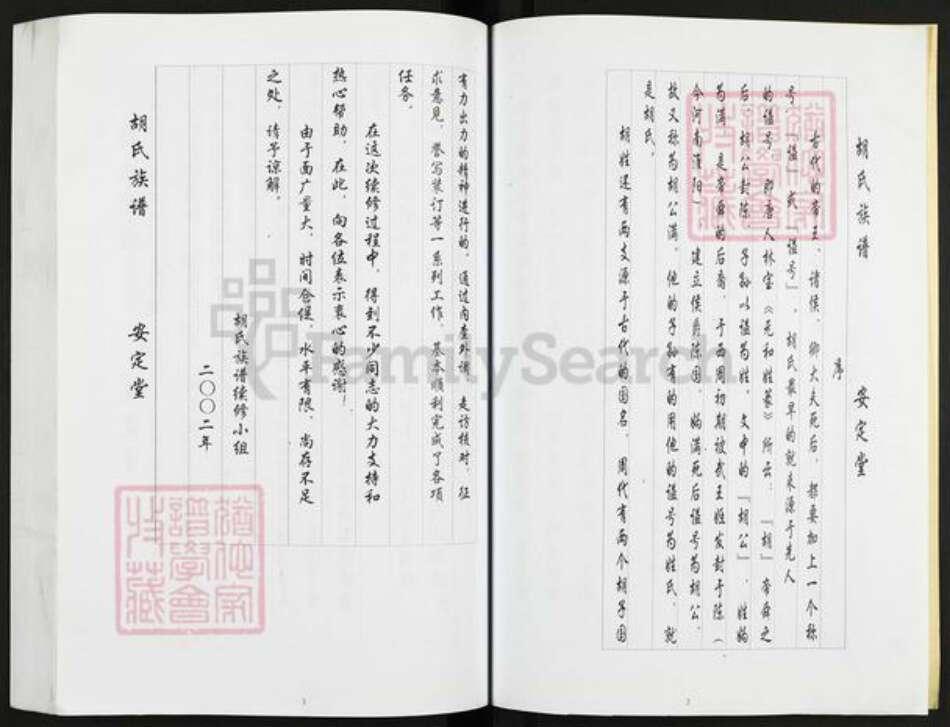 胡氏族谱 安定堂
序
古代的帝王、诸侯、卿大夫死后，都要加上一个称
号『谥』或『谥号』，胡氏最早的就来源于先人
的谥号，即唐人林宝《元和姓纂》所云：『胡』帝舜之
后，胡公封陈，子孙以谥为姓，文中的『胡公』，姓妫
为满，是帝舜的后裔，于西周初期被武王姬发封于陈（
今河南淮阳），建立侯爵陈国，妫满死后谥号为胡公，
故又称为胡公满，他的子孙有的用他的谥号为姓氏，就
是胡氏。
胡姓还有两支源于古代的国名，周代有两个胡子国
2
有力出力的精神进行的，通过内查外调，走访核对，征
求意见，誊写装订等一系列工作，基本顺利完成了各项
任务。
在这次续修过程中，得到不少同志的大力支持和
热心帮助，在此，向各位表示衷心的感谢！
由于面广量大，时间仓促，水平有限，尚存不足
之处，请予谅解。
胡氏族谱续修小组
二〇〇二年
胡氏族谱 安定堂
FamilySearch